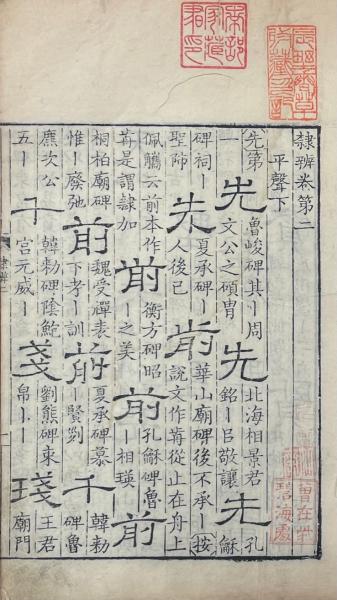 隸辨卷第二
平聲下
先第一 先 魯峻碑其｜周文公之碩胄 先 北海相景君銘｜呂敬讓 先 孔龢
碑祠｜聖師 先 夏承碑｜人後已 前 華山廟碑後不承｜按說文作歬從止在舟上
佩觿云前本作歬是謂隸加 前 衡方碑昭｜之美 前 孔龢碑魯｜相瑛 前
桐柏廟碑惟｜廢弛 前 魏受禪表下孝｜訓 前 夏承碑慕｜賢列 千 韓勑碑魯
廉次公五｜ 千 韓勑碑陰鮑宮元威｜ 戔 劉熊碑束帛｜｜ 琖 王君廟門